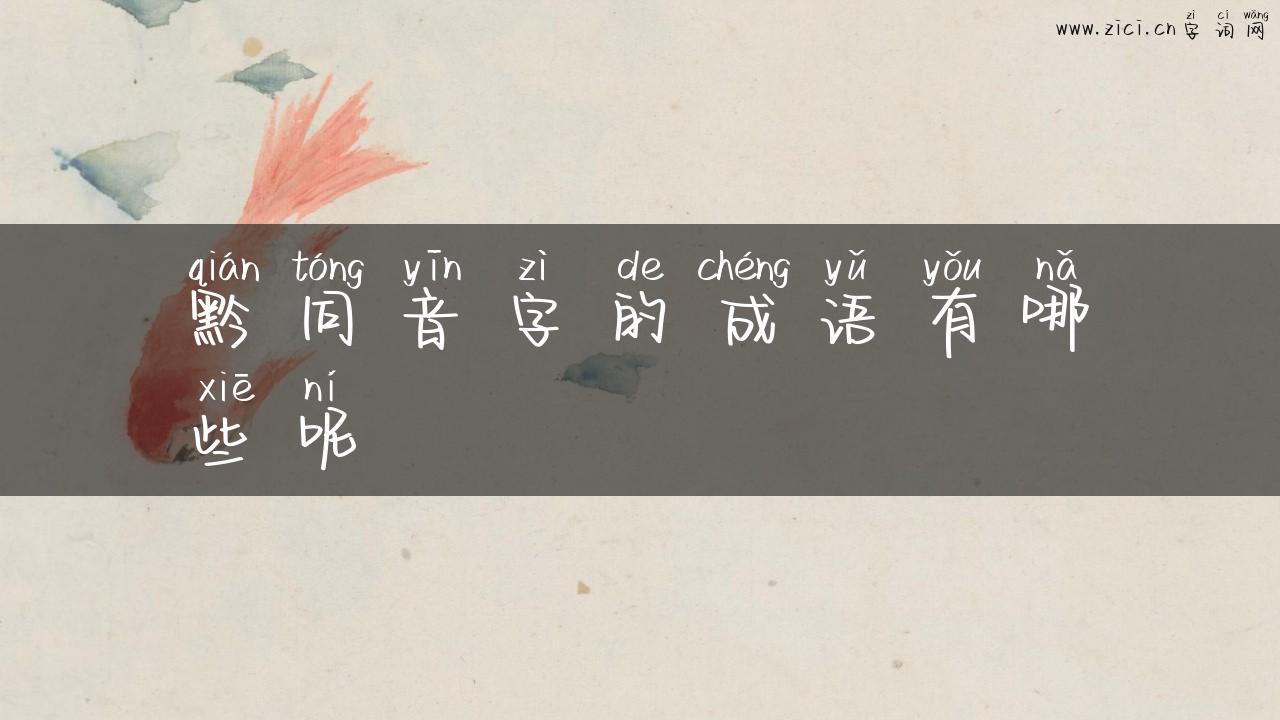 zì cí wǎng
www.zici.cn字词网
qián tóng yīn zì de chéng yǔ yǒu nǎ
黔同音字的成语有哪
xiē ní
些呢